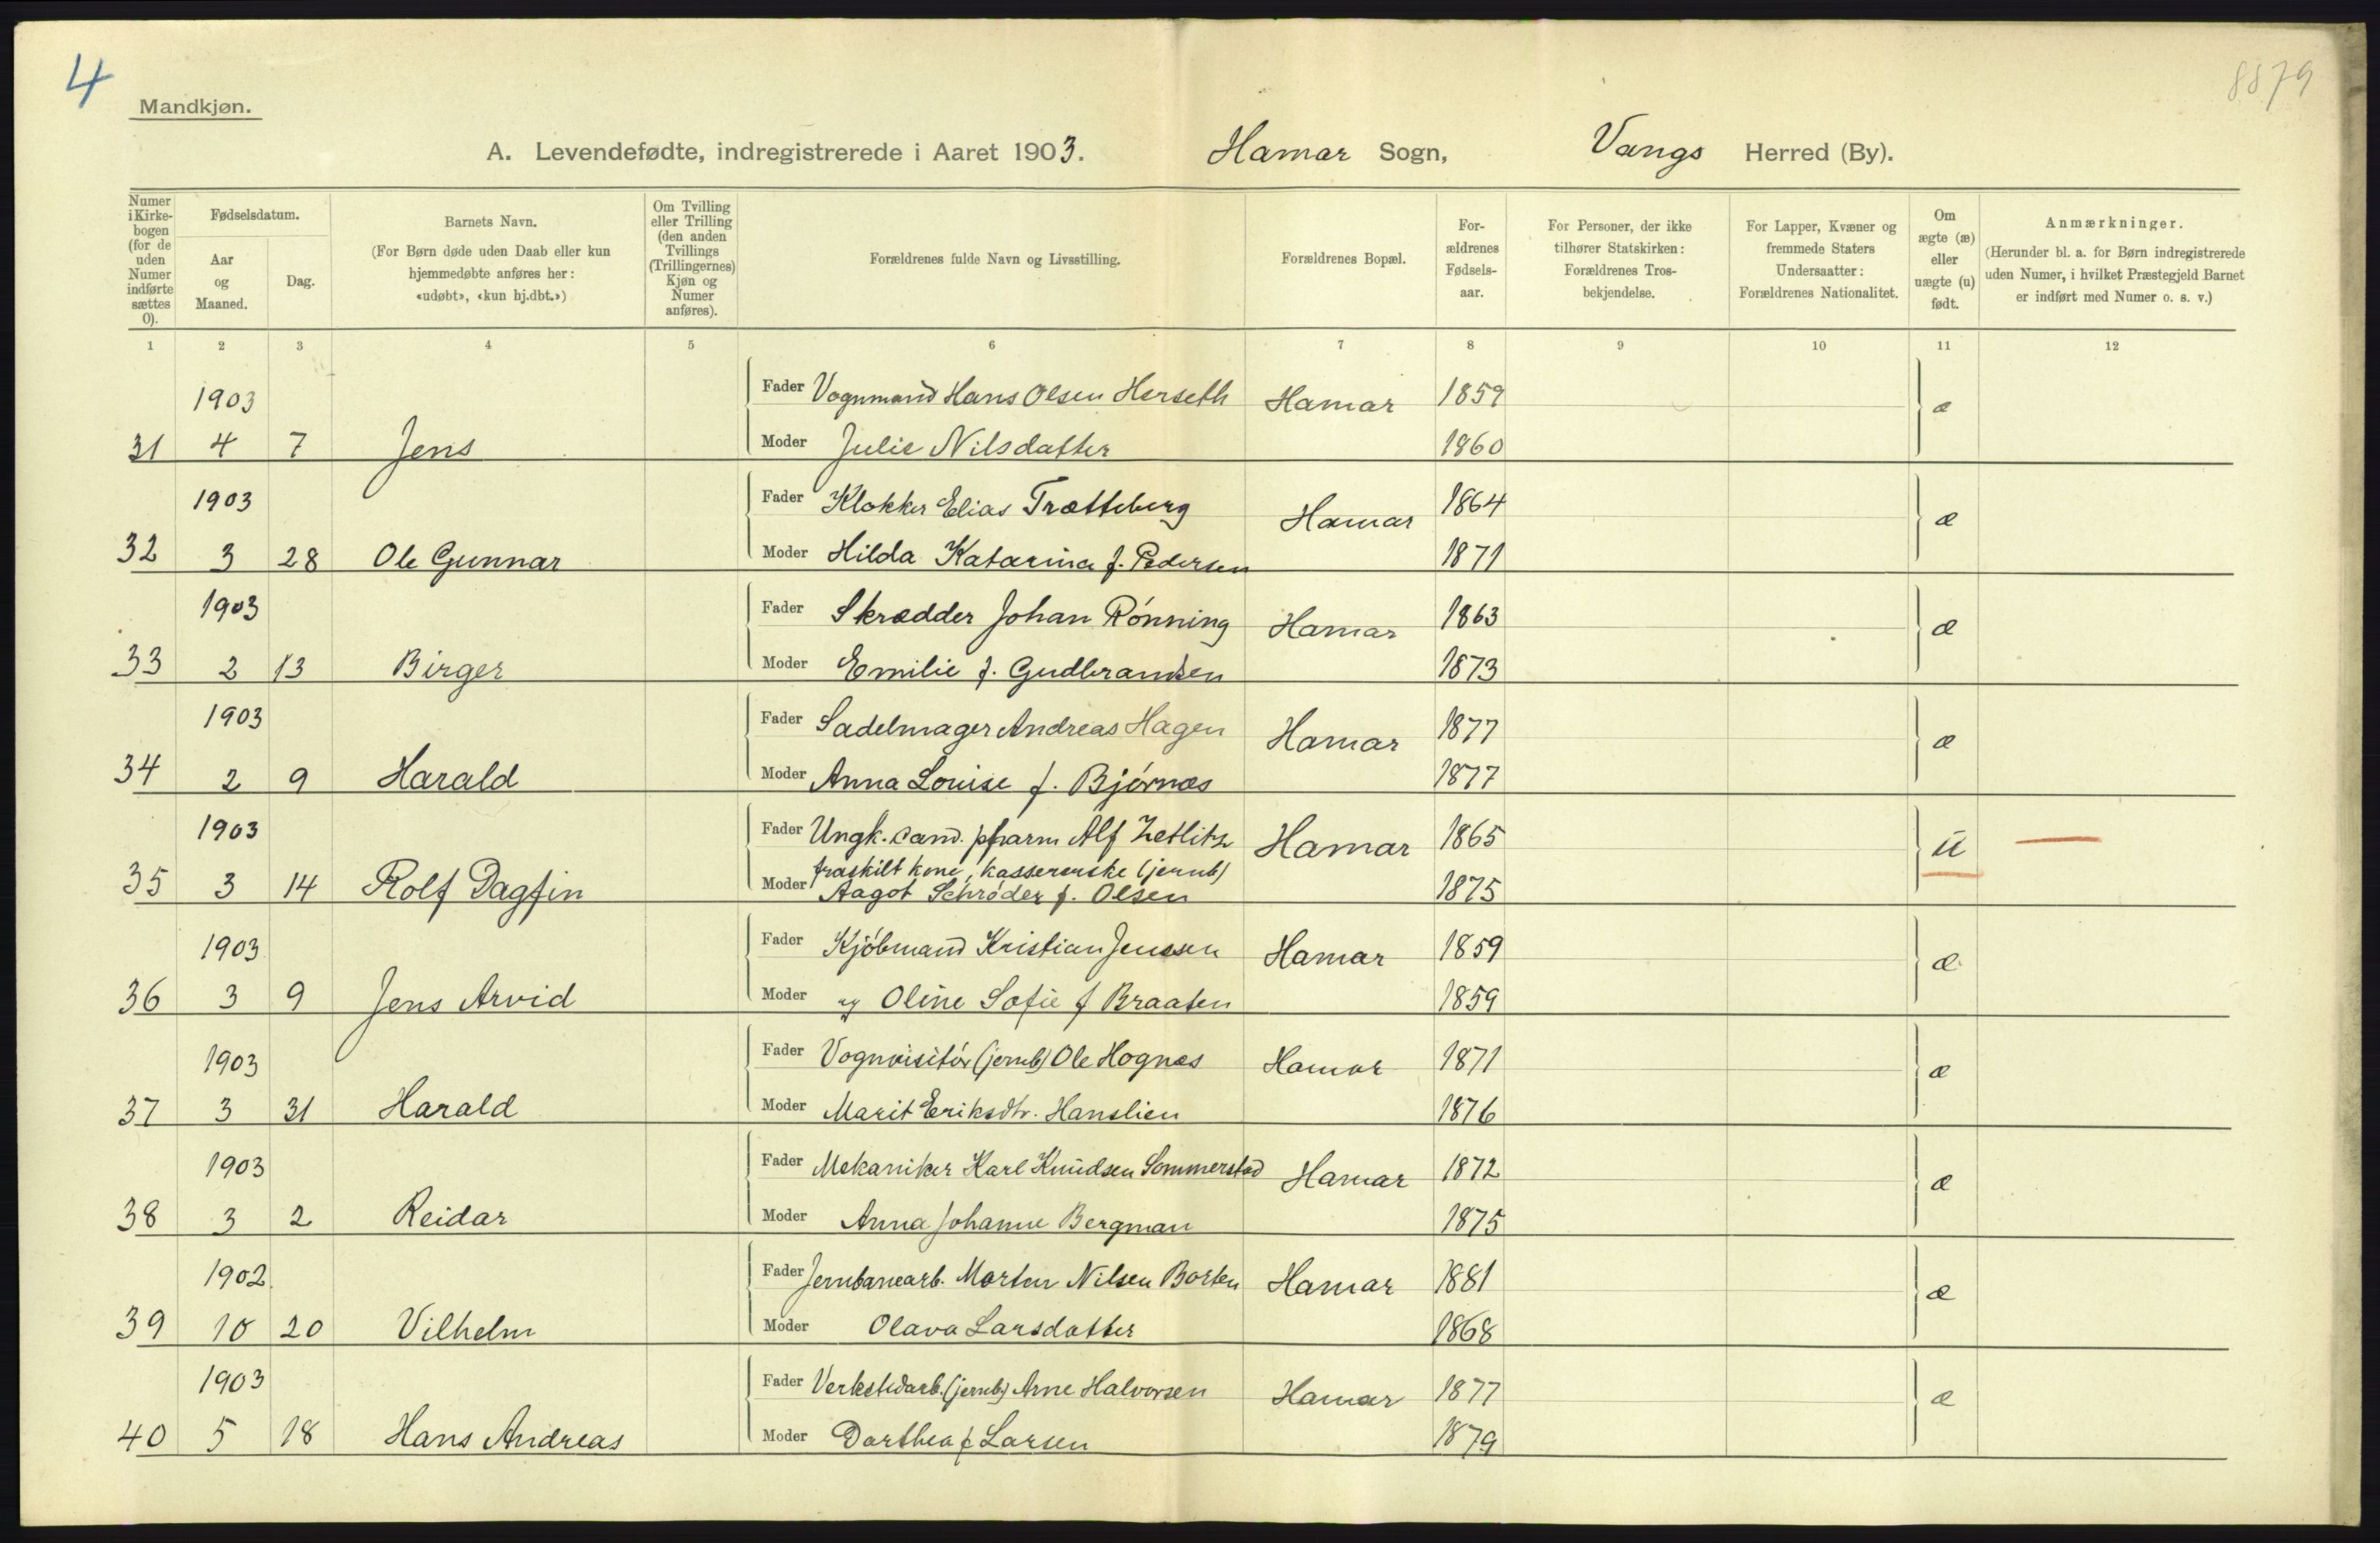 4
8879
Mandkjøn.
A. Levendefødte, indregistrerede i Aaret 1903. Hamar Sogn, Vangs Herred (By).
Numer i Kirke-bogen (for de uden Numer indførte sættes 0).
Fødselsdatum.
Aar og Maaned.
Dag.
Barnets Navn.
(For Børn døde uden Daab eller kun hjemmedøbte anføres her: «udøbt», «kun hj.dbt.»)
Om Tvilling eller Trilling (den anden Tvillings (Trillingernes) Kjøn og Numer anføres).
Forældrenes fulde Navn og Livsstilling.
Forældrenes Bopæl.
For-ældrenes Fødsels-aar.
For Personer, der ikke tilhører Statskirken: Forældrenes Tros-bekjendelse.
For Lapper, Kvæner og fremmede Staters Undersaatter: Forældrenes Nationalitet.
Om ægte (æ) eller uægte (u) født.
Anmærkninger.
(Herunder bl. a. for Børn indregistrerede uden Numer, i hvilket Præstegjeld Barnet er indført med Numer o. s. v.)
1 2 3 4 5 6 7 8 9 10 11 12
1903 Fader Vognmand Hans Olsen Herseth Hamar 1859 æ
31 4 7 Jens Moder Julie Nilsdatter 1860
1903 Fader Klokker Elias Trætteberg Hamar 1864 æ
32 3 28 Ole Gunnar Moder Hilda Katarina f. Pedersen 1871
1903 Fader Skrædder Johan Rønning Hamar 1863 æ
33 2 13 Birger Moder Emilie f. Gudbrandsen 1873
1903 Fader Sadelmager Andreas Hagen Hamar 1877 æ
34 2 9 Harald Moder Anna Louise f. Bjørnæs 1877
1903 Fader Ungk. cand. pharm Alf Zetlitz Hamar 1865 u
fraskilt kone, kassererske (jernb)
35 3 14 Rolf Dagfin Moder Aagot Schrøder f. Olsen 1875
1903 Fader Kjøbmand Kristian Jenssen Hamar 1859 æ
36 3 9 Jens Arvid Moder og Oline Sofie f Braaten 1859
1903 Fader Vognvisitør (jernb) Ole Hognæs Hamar 1871 æ
37 3 31 Harald Moder Marit Eriksdtr. Hanslien 1876
1903 Fader Mekaniker Karl Knudsen Sommerstad Hamar 1872 æ
38 3 2 Reidar Moder Anna Johanne Bergman 1875
1902 Fader Jernbanearb. Morten Nilsen Borten Hamar 1881 æ
39 10 20 Vilhelm Moder Olava Larsdatter 1868
1903 Fader Verkstedarb. (jernb) Arne Halvorsen Hamar 1877 æ
40 5 18 Hans Andreas Moder Dorthea f Larsen 1879